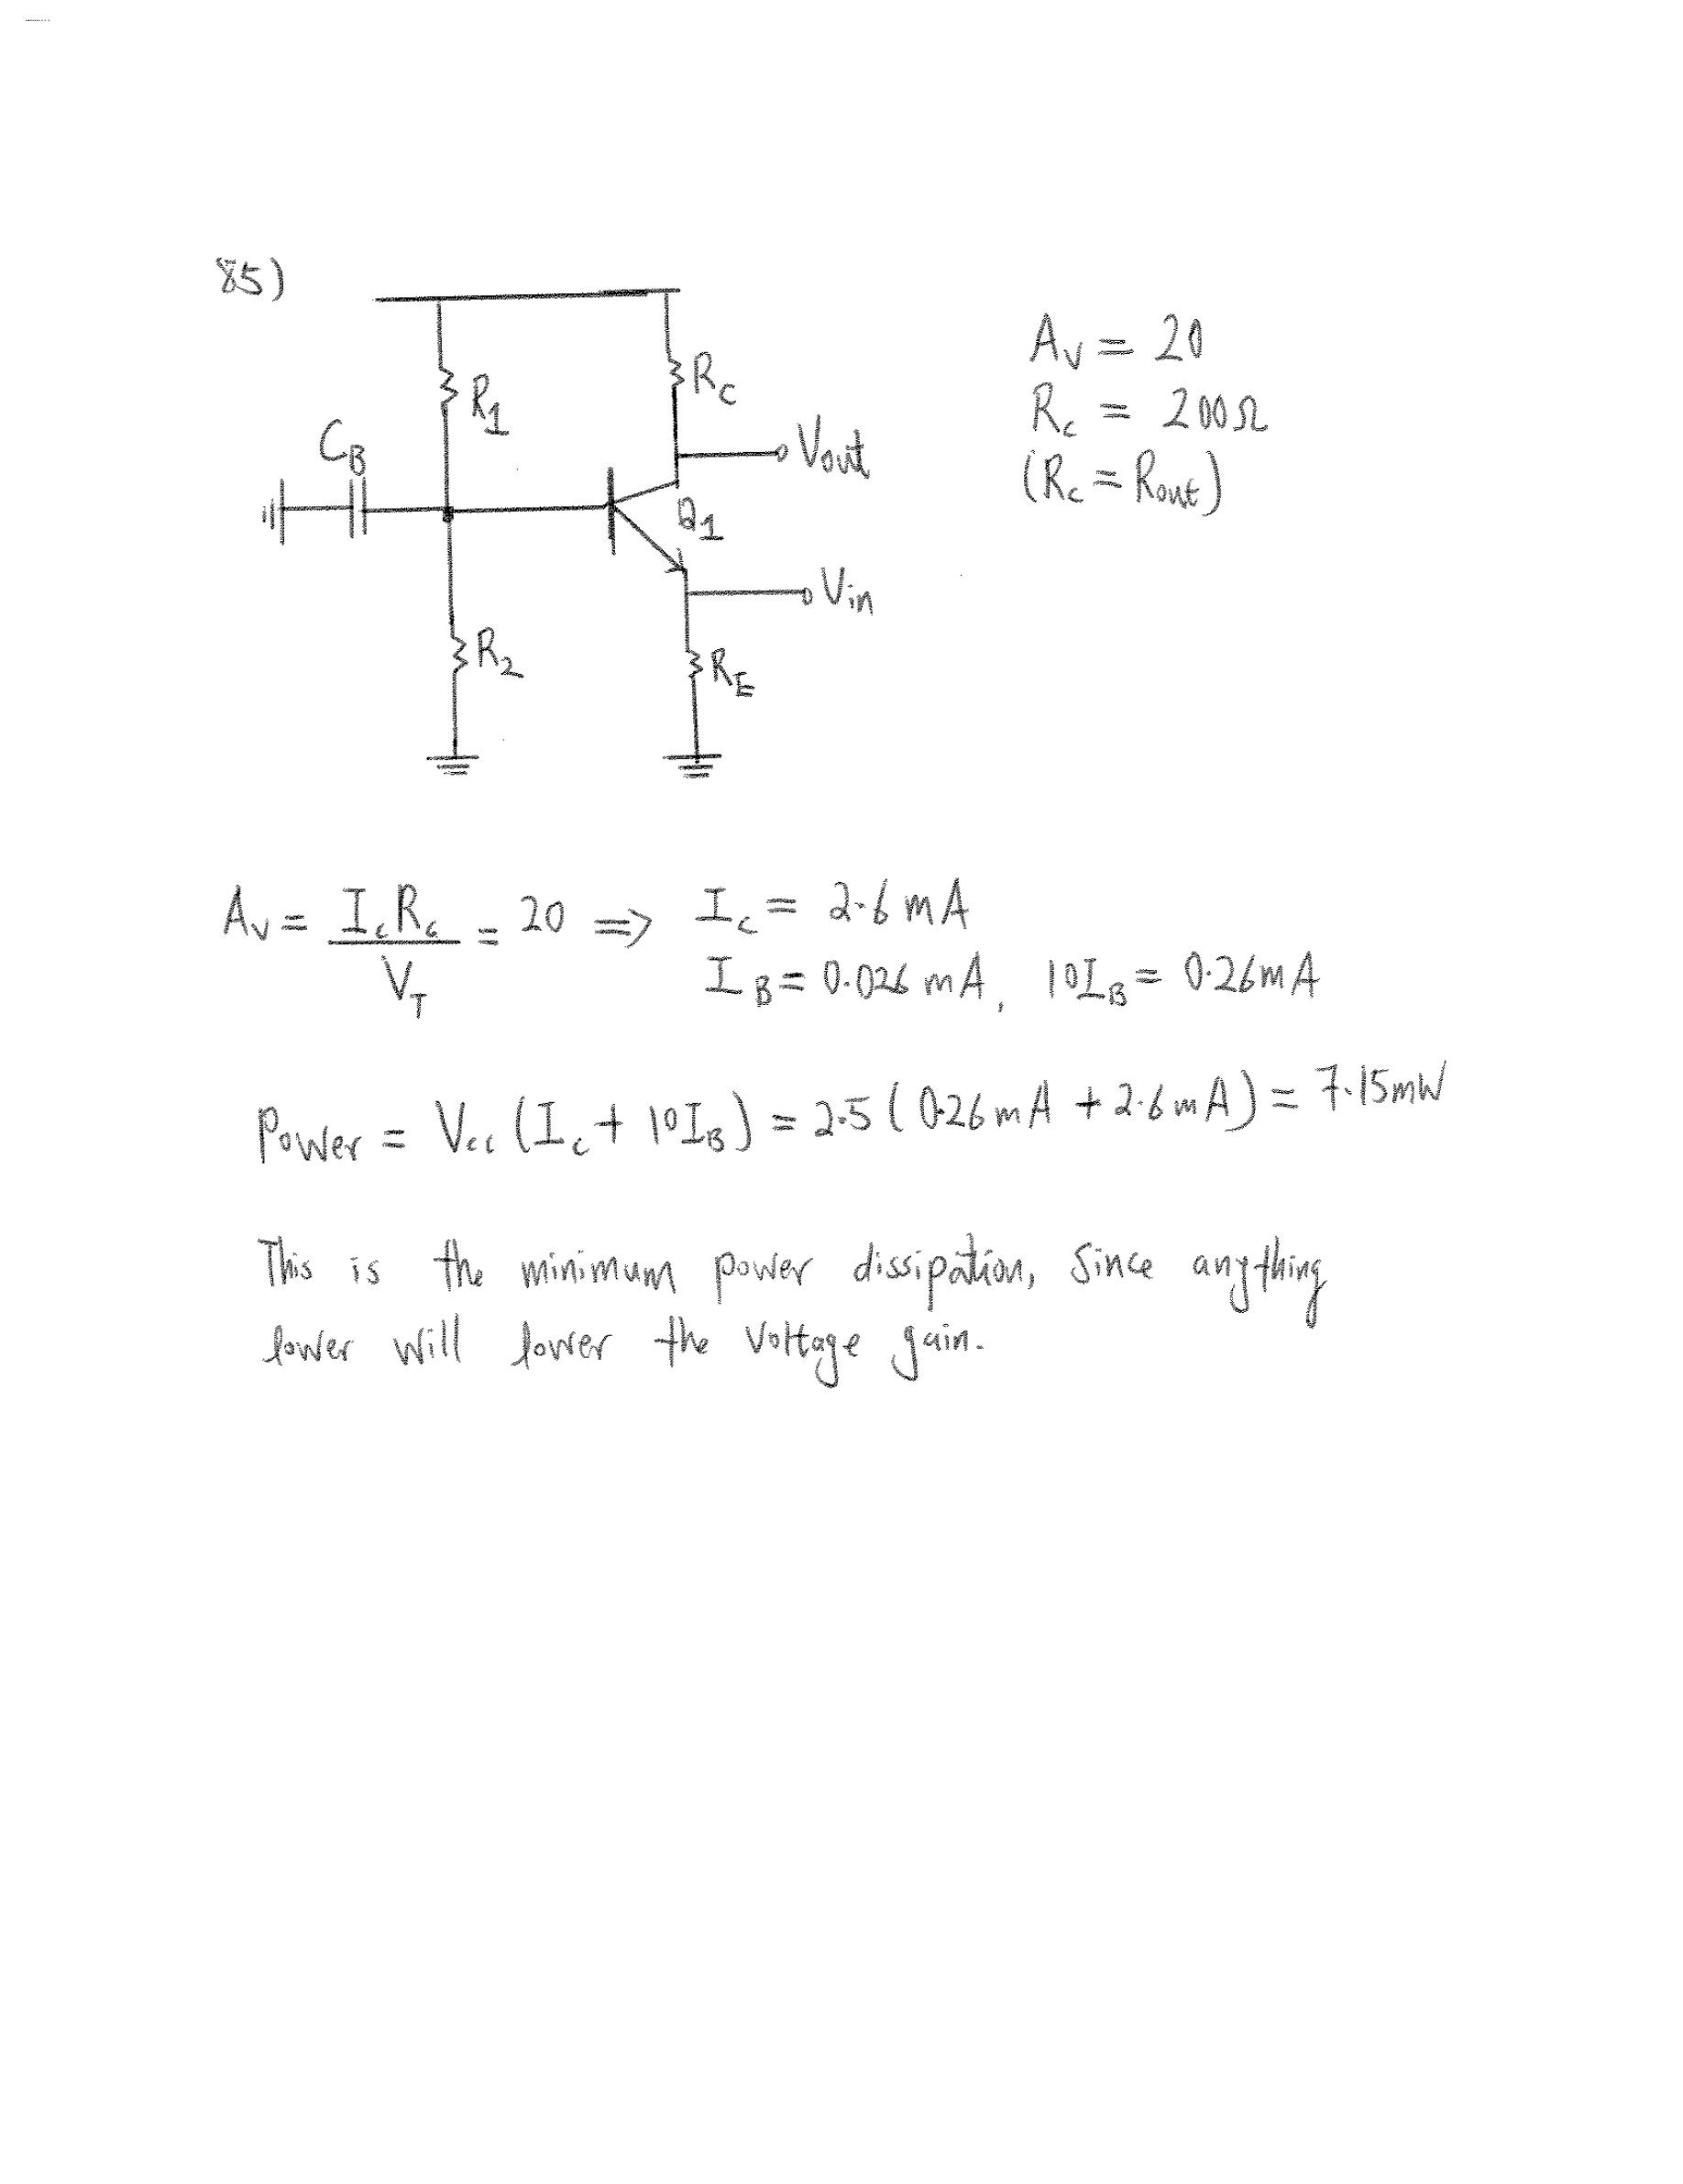 85)
R1
RC
CB
Vout
Q1
Vin
R2
RE
AV = 20
Rc = 200Ω
(Rc = Rout)
AV = IcRc / VT = 20 ⇒ Ic = 2.6 mA
IB = 0.026 mA, 10IB = 0.26mA
Power = Vcc (Ic + 10IB) = 2.5 ( 0.26 mA + 2.6 mA) = 7.15mW
This is the minimum power dissipation, since anything
lower will lower the voltage gain.